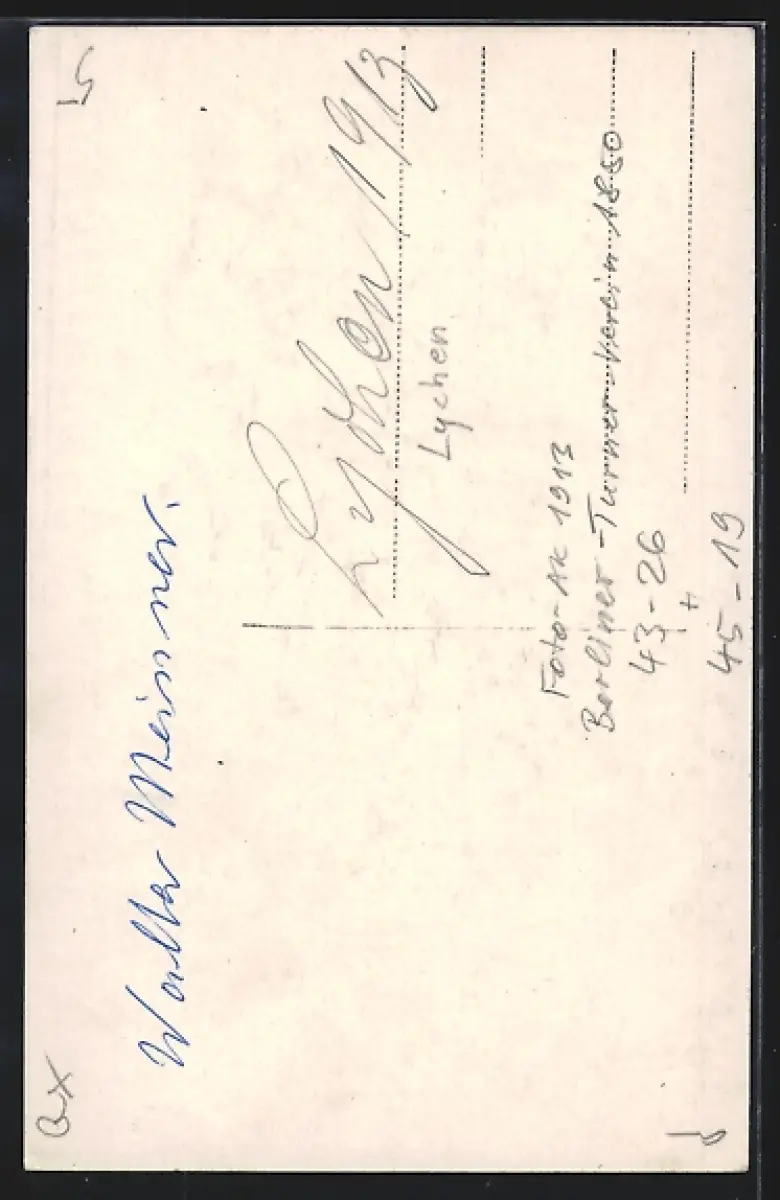 Walter Meissner.
Lychen 1913
Lychen
Foto-AK 1913
Berliner-Turner-Verein 1850
43-26
+
45-19